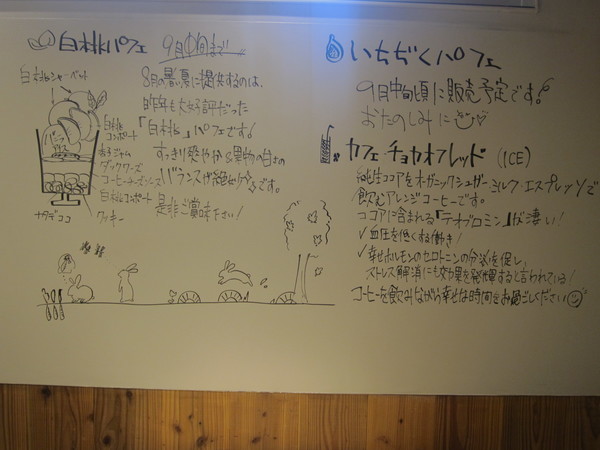 白桃パフェ 9月中旬まで
白桃シャーベット
8月の暑夏に提供するのは、
昨年も大好評だった
「白桃」パフェです!
すっきり爽やか&果物の甘さの
バランスが絶妙です。
是非ご賞味下さい!
バニラ
アイス
白桃
コンポート
赤すジャム
ダックワーズ
コーヒーチーズムース
白桃コンポート
ナタデココ
クッキー
いちぢくパフェ
9月中旬頃に販売予定です!
おたのしみに
カフェ チョカオフレッド (ICE)
純生ココアをオーガニックシュガー ミルク・エスプレッソで
飲むアレンジコーヒーです。
ココアに含まれる「テオブロミン」が凄い!
✓血圧を低くする働き!
✓幸せホルモンのセロトニンの分泌を促し
ストレス解消にも効果を発揮すると言われている!
コーヒーを飲みながら幸せな時間をお過ごしください